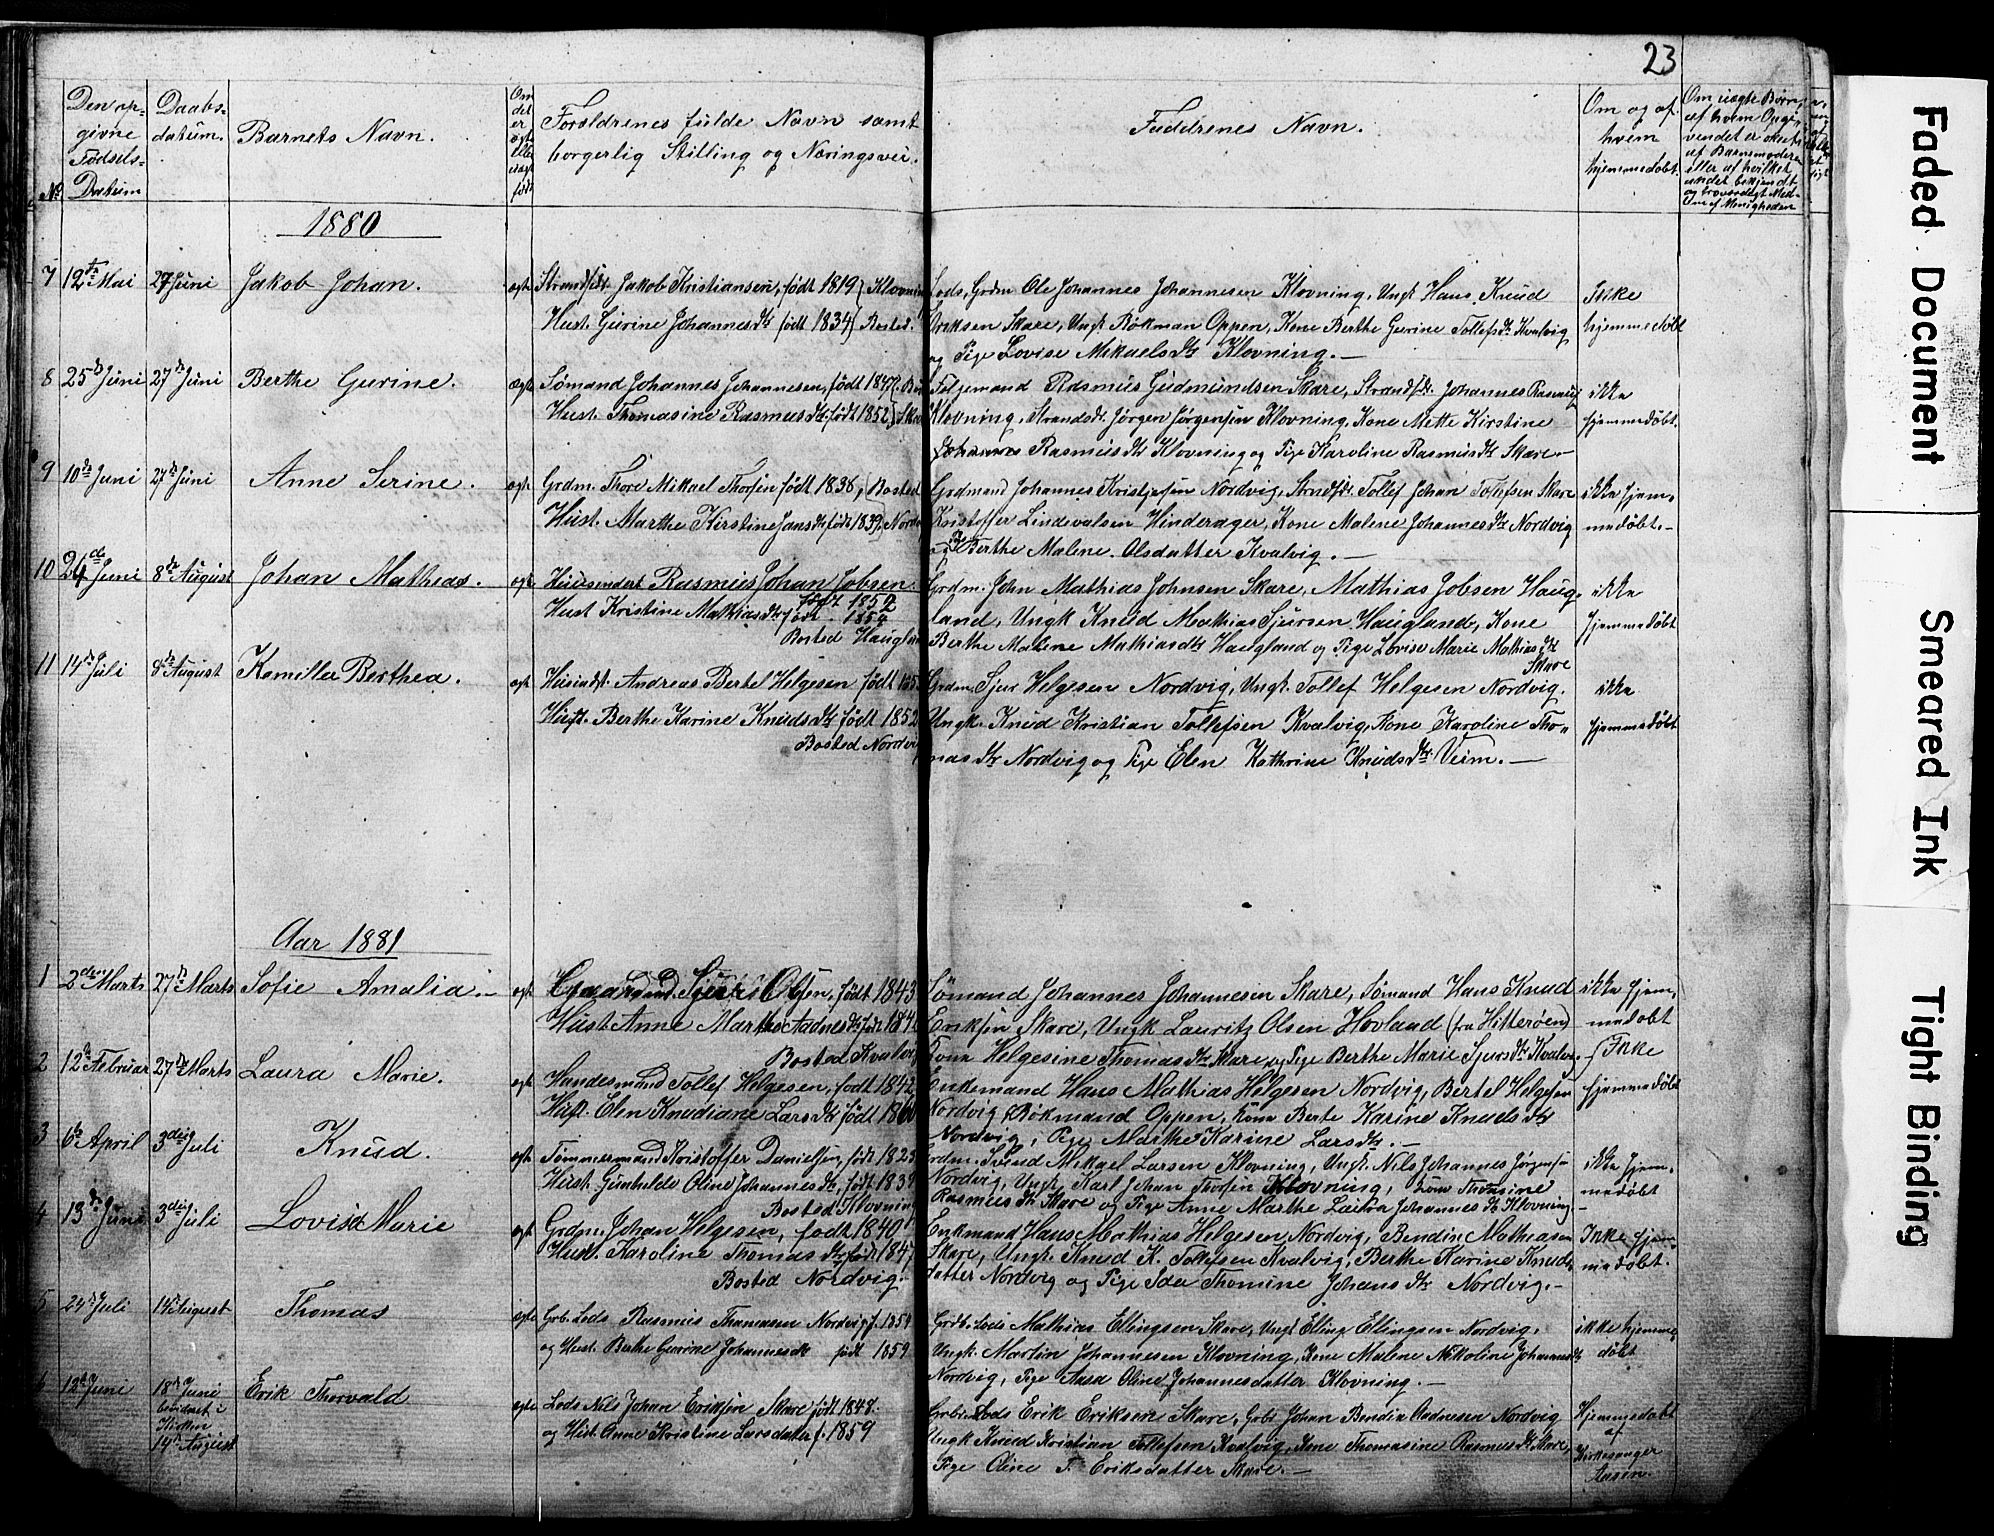 23
Den op-
givne
Fødsels-
Datum
No
Daabs-
datum.
Barnets Navn.
Om
det
er
ægte
eller
uægte
født
Forældrenes fulde Navn samt
borgerlig Stilling og Næringsvei.
Faddrenes Navn.
Om og af
hvem
hjemmedøbt.
Om uægte Børn,
af hvem Opgi-
vendet er skeet:
af Barnemoderen
eller af hvilket
andet bekjendt
og troværdigt Med-
lem af Menigheden
1880
7 12te Mai 27 Juni Jakob Johan. ægte Strands. Jakob Kristiansen, født 1819 Klovning
Hust. Gurine Johannesdtr født 1834 Bosted.
Lods, Grdm Ole Johannes Johannesen Klovning, Ungk Hans Knud
Eriksen Skare, Ungk Bøkman Oppen, Kone Berthe Gurine Tollefsdtr Kvalvig
og Pige Lovise Mikaelsdtr Klovning. —
Ikke
hjemmedøbt
8 25de Juni 27de Juni Berthe Gurine. ægte Sømand Johannes Johannesen, født 1847.
Hust. Thomasine Rasmusdtr født 1852 Skare
Følgemand Rasmus Gudmundsen Skare, Johannes Rasmus
Klovning, Jørgen Jørgensen Klovning, Kone Mette Kirstine
Johannes Rasmusdtr Klovning og Pige Karoline Rasmusdtr Skare —
ikke
hjemmedøbt.
9 10de Juni 27de Juni Anne Serine. ægte Grdm. Thore Mikael Thorsen født 1838, Bosted
Hust. Marthe Kirstine Jansdtr født 1839, Nordv
Grdmand Johannes Kristjesen Nordvig, Tollef Johan Tollefsen Skare
Kristoffer Lindevalsen Hinderager, Kone Malene Johannesdtr Nordvig
og Pige Berthe Malene Olsdatter Kvalvig. —
ikke hjem-
medøbt. —
10 24de Juni 8de August Johan Mathias. ægte Rasmus Johan Jobsen
født 1852
Hust Kristine Mathiasdtr født 1854
Bosted Haugland
Grdm. John Mathias Johnsen Skare, Mathias Jobsen Haug-
land, Ungk Knud Mathias Sjursen Haugland, Kone
Berthe Malene Mathiasdtr Haugland og Pige Lovise Marie Mathiasdtr
Skare
ikke
hjemmedøbt
11 14de Juli 8de August Kamilla Berthea. ægte Andreas Bertel Helgesen født 185
Hust. Berthe Karine Knudsdtr født 1852
Bosted Nordvi
Grdm. Sjur Helgesen Nordvig, Ungk. Tollef Helgesen Nordvig.
Ungk. Knud Kristian Tollefsen Kvalvig, Kone Karoline Tho-
masdtr Nordvig og Pige Elen Kathrine Knudsdtr Veim. —
ikke
hjemmedøbt
Aar 1881
1 2den Marts 27de Marts Sofie Amalia. — ægte Gaardmd. Sjur Olsen, født 1843
Hust Anne Marthe Aadnesdtr født 184
Bosted Kvalvig
Sømand Johannes Johannesen Skare, Sømand Hans Knud
Eriksen Skare, Ungk Lauritz Olsen Hovland (fra Hitterøen)
Kone Helgesine Thomasdtr Skare og Pige Berthe Marie Sjursdtr Kvalv.
ikke hjem-
medøbt
2 12te Februar 27de Marts Laura Marie. ægte Handesmand Tollef Helgesen, født 1842
Hust. Elen Knudiane Larsdtr født 1860
Enkemand Hans Mathias Helgesen Nordvig, Bertel Helgesen
Nordvig, Bøkmand Oppen, Kone Berte Karine Knudsdtr
Nordvig, Pige Marthe Karine Larsdtr. —
Ikke
hjemmedøbt
3 6te April 3die Juli Knud. ægte Tømmermand Kristoffer Danielsen, født 1825
Hust. Gunhilde Oline Johannesdtr, født 1839
Bosted Klovning
Grdm. Svend Mikael Larsen Klovning, Ungk. Nils Johannes Jørgense
Nordvig, Ungk Karl Johan Thorsen Klovning, Kone Thomsine
Rasmusdtr Skare og Pige Anne Marthe Laura Johannesdtr Klovning.
ikke hjem-
medøbt
4 13de Juni 3die Juli Lovisa Marie ægte Grdm. Johan Helgesen, født 1840
Hust. Karoline Thomasdtr født 1847
Bosted Nordvig.
Enkmand Hans Mathias Helgesen Nordvig, Bendin Mathiasen
Skare, Ungk. Knud K. Tollefsen Kvalvig, Berthe Karine Knuds-
datter Nordvig og Pige Ida Thomine Johansdtr Nordvig. —
Ikke hjem-
medøbt.
5 24de Juli 14de August Thomas ægte Grb. Lods Rasmus Thomasen Nordvig f. 1854
og Hust. Berthe Gurine Johannesdtr født 1859
Grdb. Lods Mathias Ellingsen Skare, Ungk Elling Ellingsen Nordvig,
Ungk. Martin Johannesen Klovning, Kone Malene Nikoline Johannesdtr
Nordvig, Pige Aasa Oline Johannesdatter Klovning. —
ikke hjemme-
døbt
6 12te Juni 18de Juni
bevidnet i
Kirken
14de August
Erik Thorvald ægte Lods Nils Johan Eriksen Skare født 1848.
og Hust. Anne Kristine Larsdatter f. 1859
Grbr. Lods Erik Eriksen Skare, Grbr Johan Bendix Aadnesen Nordvig
Ungk Knud Kristian Tollefsen Kvalvig, Kone Thomasine Rasmusdtr Skare,
Pige Oline T. Eriksdatter Skare. —
Hjemmedøbt
af
Kirkesanger
Aasen.
Faded Document
Smeared Ink
Tight Binding